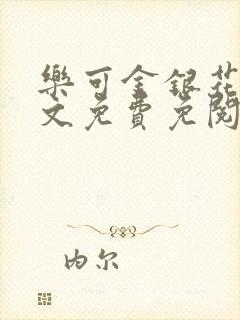 樂可金銀花
文免費免閱
内尔